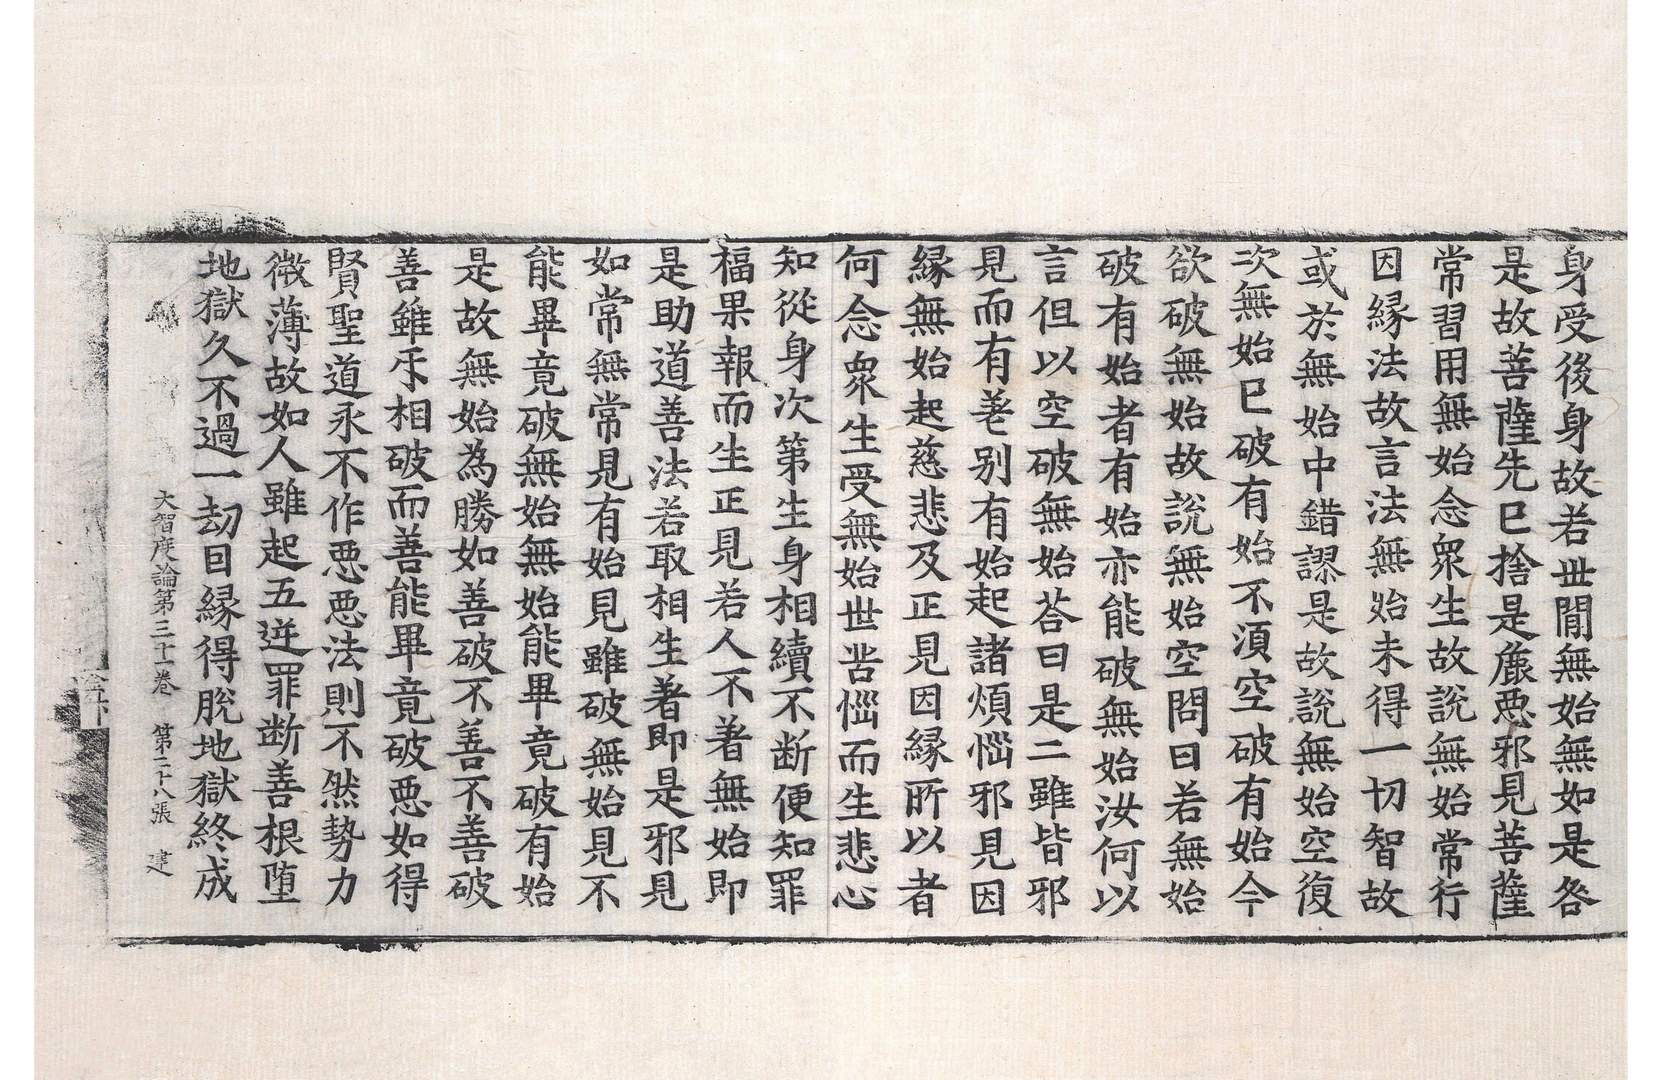 身受後身故若世閒無始無如是咎
是故菩薩先已捨是麁惡邪見菩薩
常習用無始念衆生故說無始常行
因縁法故言法無始未得一切智故
或於無始中錯謬是故說無始空復
次無始已破有始不湏空破有始今
欲破無始故說無始空問曰若無始
破有始者有始亦能破無始汝何以
言但以空破無始荅曰是二雖皆邪
見而有差別有始起諸煩惱邪見因
縁無始起慈悲及正見因縁所以者
何念衆生受無始世苦惱而生悲心
知從身次第生身相續不断便知罪
福果報而生正見若人不著無始即
是助道善法若取相生著即是邪見
如常無常見有始見雖破無始見不
能畢竟破無始無始能畢竟破有始
是故無始為勝如善破不善不善破
善雖㸦相破而善能畢竟破惡如得
賢聖道永不作惡惡法則不然勢力
微薄故如人雖起五逆罪断善根堕
地獄久不過一劫因縁得脫地獄終成
大智度論第三十一卷 第二十八張 建